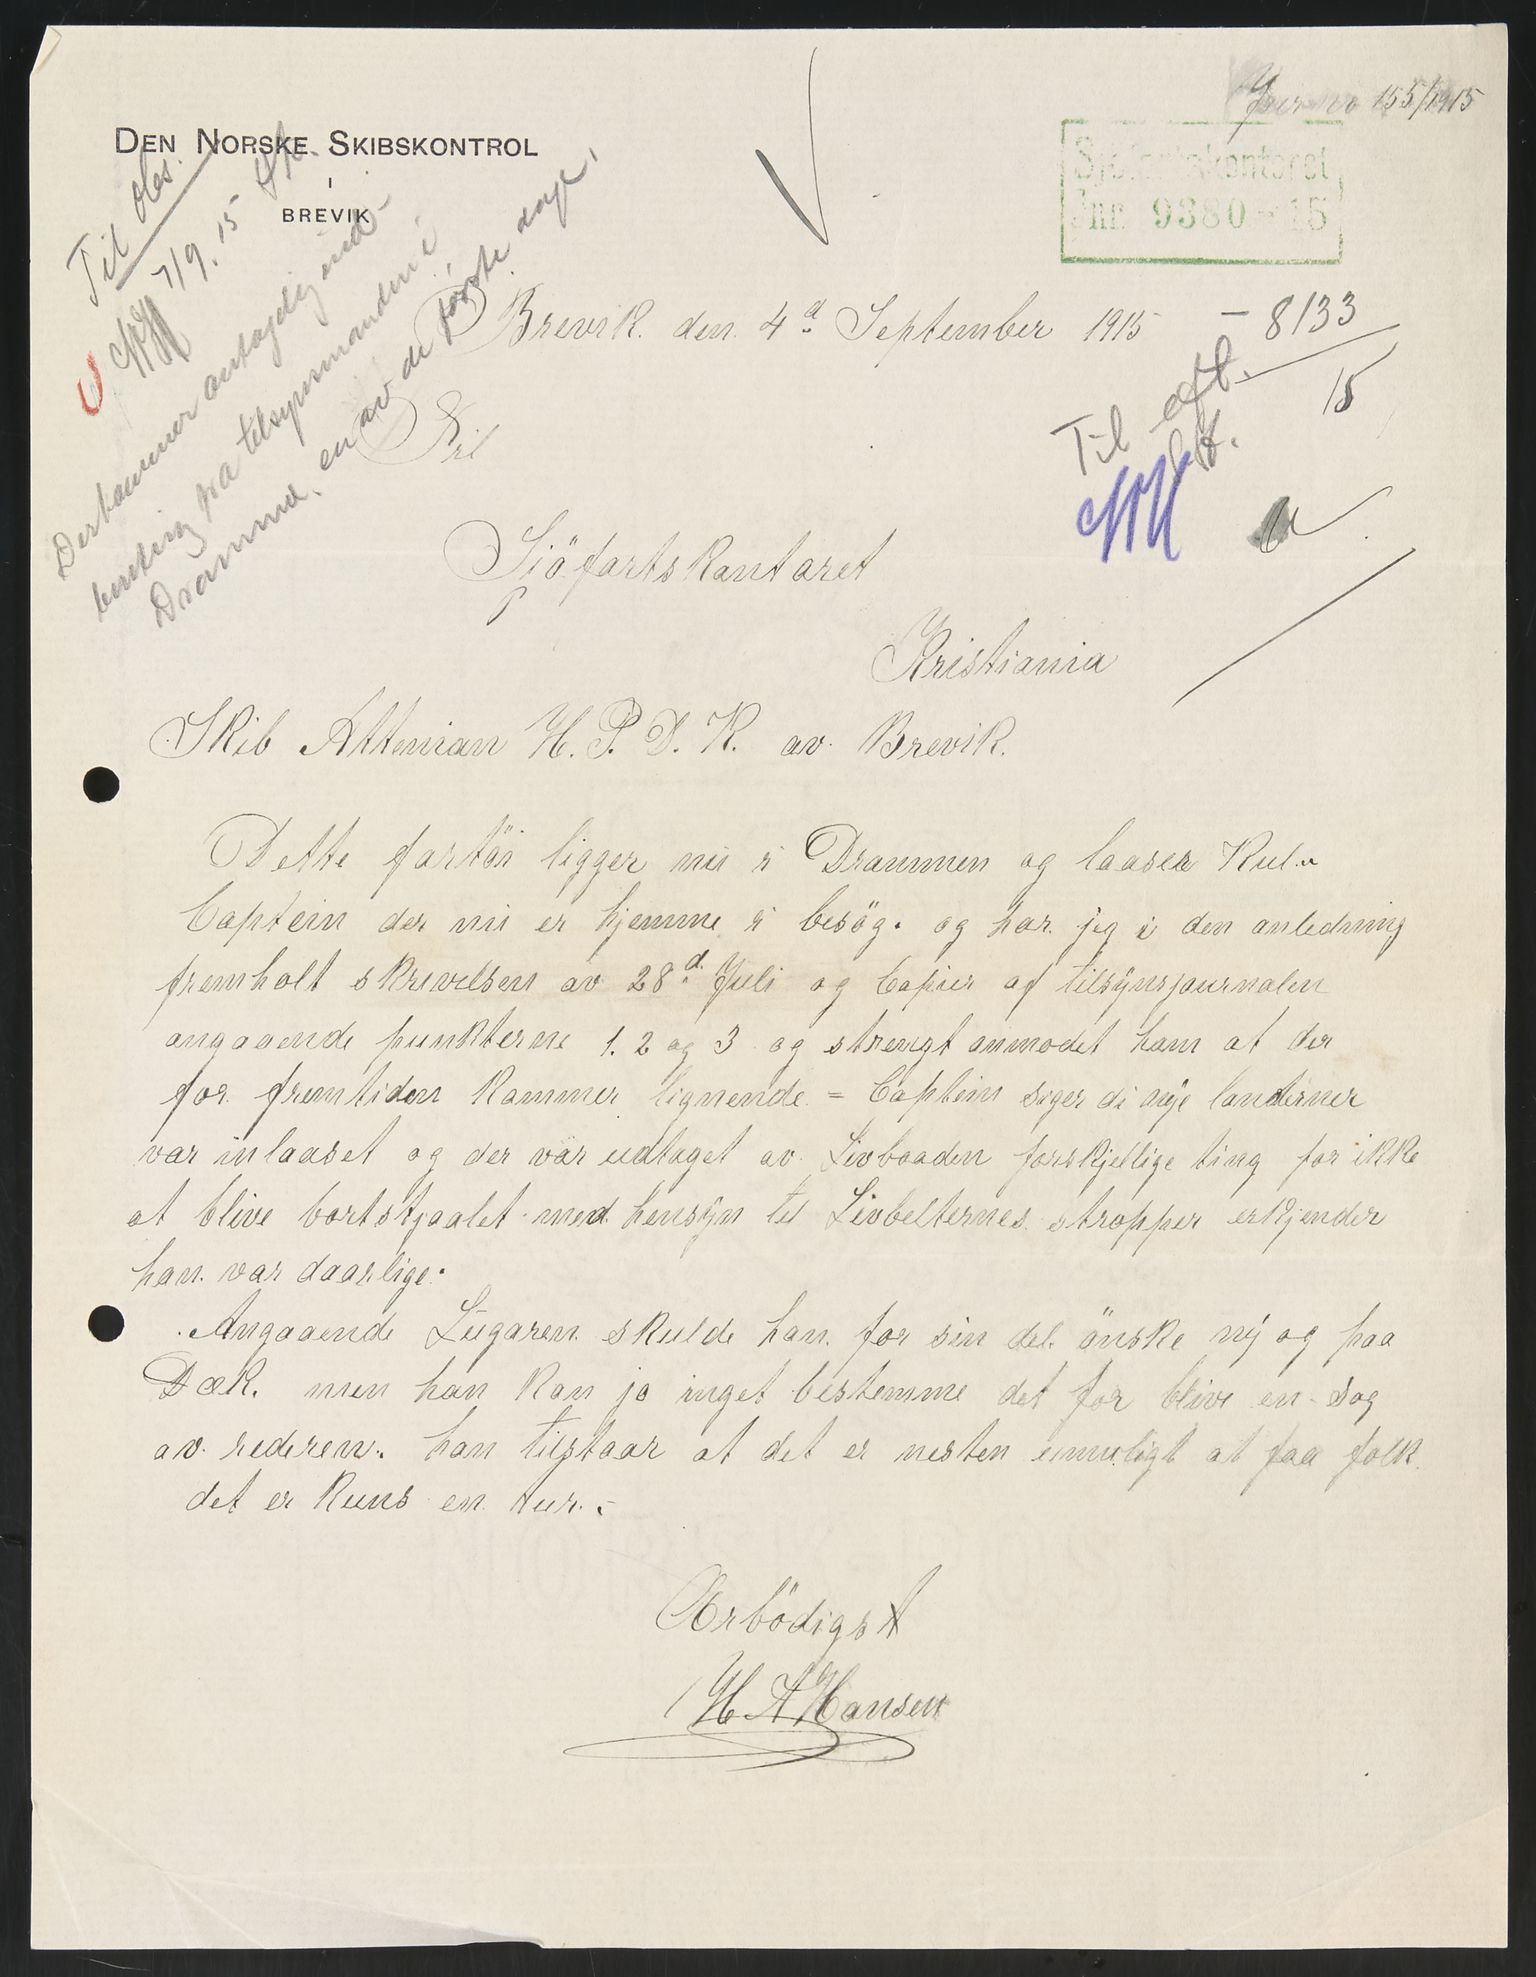 Jour no 155/1915
DEN NORSKE SKIBSKONTROL
I
BREVIK
Sjøfartskontoret
Jnr. 9380 - 15
Til obs.
7/9.15
Der kommer antagelig ind-
beretning fra tilsynsmanden i
Drammen, en av de første dage.
Brevik. den. 4d September 1915
- 8133
15
Til
Til
Sjöfartskontoret
Kristiania
Skib Attenian H. P. D. K. av. Brevik.
Dette fartöi ligger nu i Drammen og laaser Kul.
Captein der nu er hjemme i besög. og har jeg i den anledning
fremholt skrivelsen av 28d. Juli og Copier af tilsynsjournalen
angaaende punkterne 1. 2 og 3 og strengt anmodet ham at der
for fremtiden kommer lignende = Captein siger di nye lanterner
var inlaaset og der var udtaget av Livbaaden forskjellige ting for ikke
at blive bortstjaalet med hensyn til Livbelternes stropper erkjender
han var daarlige.
Angaaende Lugaren skulde han for sin del önske ny og paa
Dæk. men han kan jo inget bestemme det for blive en sag
av rederen. han tilstaar at det er nesten umuligt at faa folk
det er kuns en tur.
Ærbödigst
H A Hansen